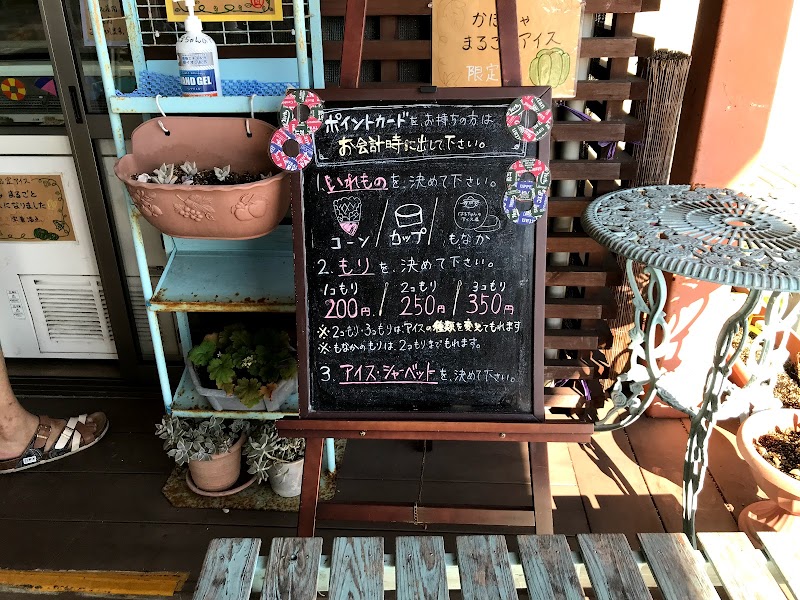 かぼちゃ
まるごとアイス
限定
HAND GEL
ポイントカードを、お持ちの方は、
お会計時に出して下さい。
1.いれものを、決めて下さい。
コーン/カップ/もなか
2.もりを、決めて下さい。
1コもり 2コもり 3コもり
200円/250円/350円
※2コもり・3コもりは、アイスの種類を変えてもれます
※もなかのもりは、2コもりまでもれます。
3.アイス・シャーベットを、決めて下さい。
まるごと
になりました